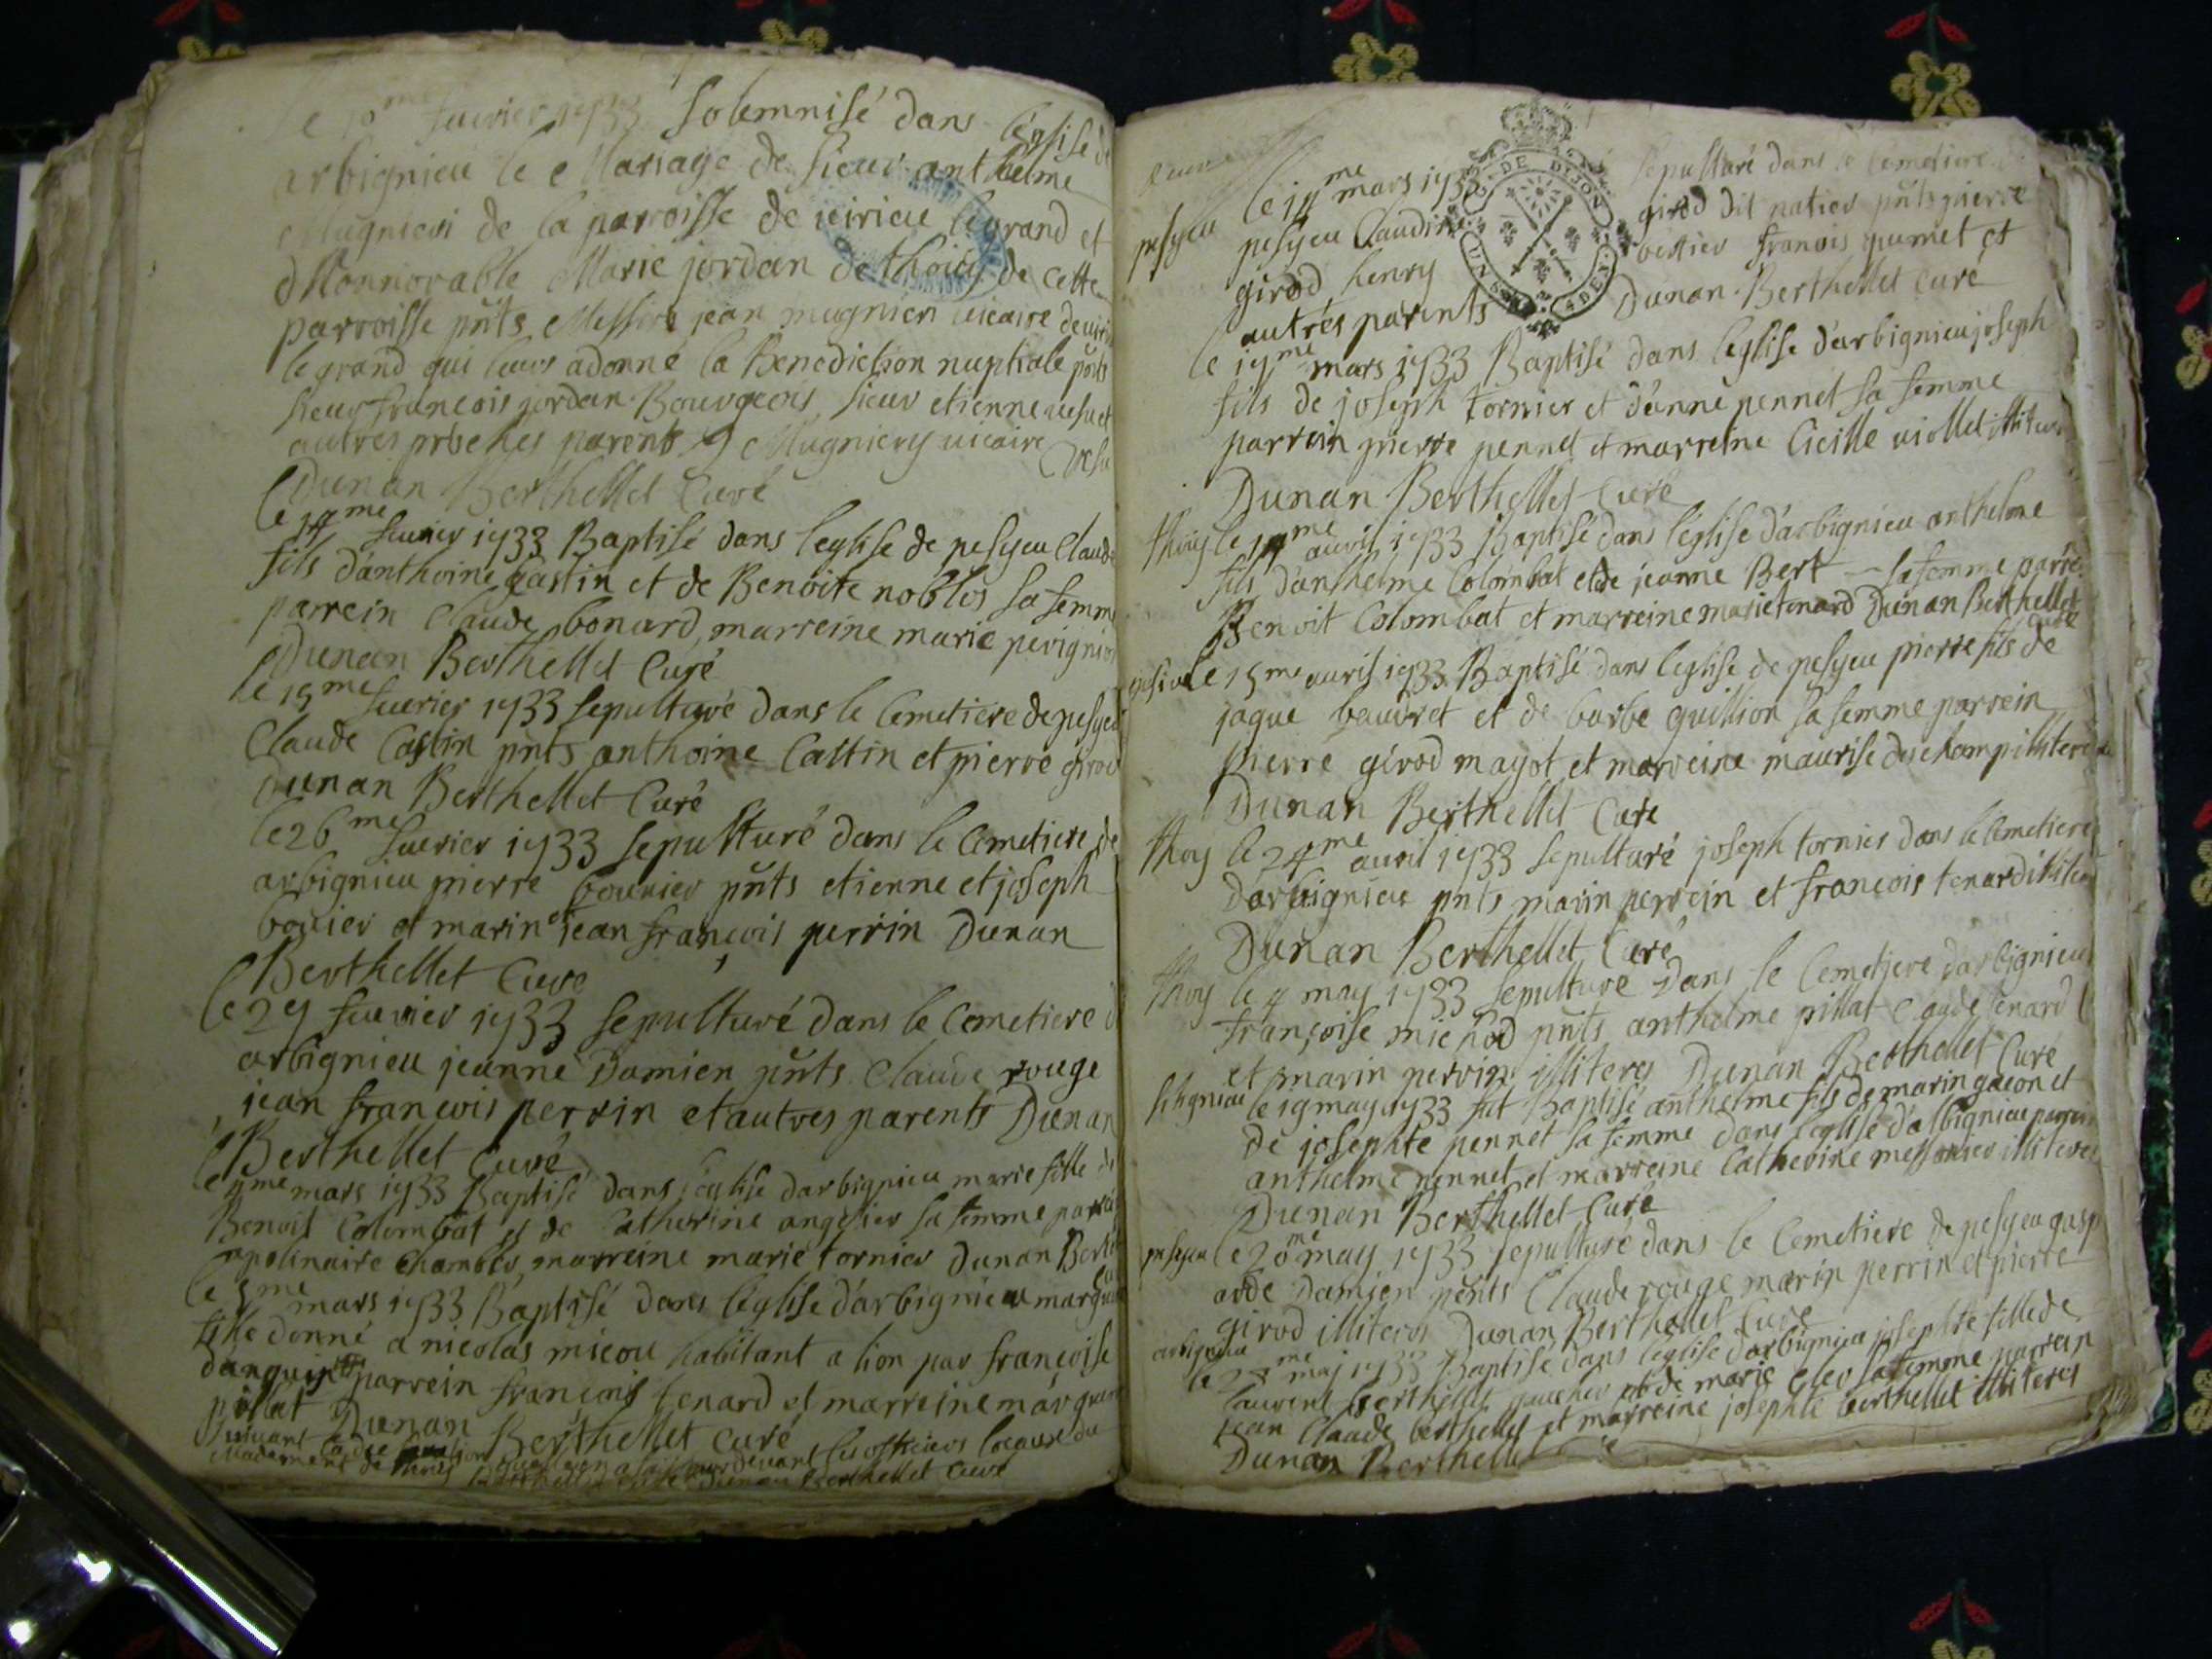 Le 10me feuvier 1733 solemnisé dans l'eglise de
arbignieu le Mariage de sieur anthelme
Mugnieri de la parroisse de uirieu legrand et
d'Honnorable Marie jordan de thoiy de cette
parroisse pnts Messire jean mugnieri uicaire de uirieu
legrand qui leurs a donné la Benediction nuptiale pnts
sieur francois jordan Bourgeois, sieur etienne uesu et
autres prosches parents Mugniery uicaire Vesu
Dunan Berthellet Curé
le 14me feuvier 1733 Baptisé dans leglise de pesyeu Claude
fils d'anthoine Castin et de Benoite noblos sa femme
parrein Claude bonard, marreine marie perignier
Dunan Berthellet Curé
le 15me feuvrier 1733 sepulturé dans le Cemetiere de pesyeu
Claude Castin pnts anthoine Castin et pierre girod
Dunan Berthellet Curé
le 26me feuvrier 1733 sepulturé dans le Cemetiere de
arbignieu pierre bouvier pnts etienne et joseph
bouvier et marin et jean françois perrin Dunan
Berthellet Cure
le 27 feuvrier 1733 sepulturé dans le Cemetiere d
arbignieu jeanne Damien pnts Claude rouge
jean francois perrin et autres parents Dunan
Berthellet Curé
le 4me mars 1733 Baptisé dans leglise darbignieu marie fille de
Benoit Colombat et de Catherine angelier sa femme parrein
apolinaire Chambes, marreine marie tornier Dunan Berth
le 5me mars 1733 Baptisé dans leglise d'arbignieu margue
fille donné a nicolas micou habitant a lion par françoise
parrein francois tenard et marreine margue
pillat Dunan Berthellet Curé
suivant la Declaration par devant les officiers du
Mandement de thoiy Dunan Berthellet Curé
pesyeu
le 14me mars 1733 sepulturé dans le Cemetiere
pesyeu Claudine girod dit natier pnts pierre
girod henry vettier francois gumet et
autres parents Dunan Berthellet Curé
DE DIJON
le 17me mars 1733 Baptisé dans leglise d'arbignieu joseph
fils de joseph tornier et d'anne pennet sa femme
parrein pierre pennet et marreine Cicille uiollet
Dunan Berthellet Curé
thoiy le 14me auvril 1733 Baptisé dans leglise d'arbignieu anthelme
fils d'anthelme Colombat et de jeanne Bert sa femme parre
Benoit Colombat et marreine marie tenard Dunan Berthellet
Curé
le 15me auvril 1733 Baptisé dans leglise de pesyeu pierre fils de
jaque baudret et de barbe guillion sa femme parrein
pierre girod mayot et marreine maurise deschamp illiteré
Dunan Berthellet Curé
thoy le 24me auvril 1733 sepulturé joseph tornier dans le Cemetiere
Darbignieu pnts marin perrein et francois tenard illiteres
Dunan Berthellet Curé
thoy le 4 may 1733 sepulturé dans le Cemetiere darbignieu
françoise michod pnts anthelme pillat Claude tenard
et marin perrin illiteres Dunan Berthellet Curé
le 19 may 1733 fut Baptisé anthelme fils de marin gacon et
de josephte pennet sa femme dans leglise d'arbignieu parrein
anthelme pennet et marreine Catherine messonier illiteres
Dunan Berthellet Curé
pesyeu le 20me may 1733 sepulturé dans le Cemetiere de pesyeu gasp
arde Damien pents Claude rouge marin perrin et pierre
girod illiteres Dunan Berthellet Curé
arbignieu
le may 1733 Baptisé dans leglise darbignieu josephte fille de
laurent berthellet gaucher et de marie cler sa femme parrein
jean Claude berthellet et marreine josephte berthellet illiteres
Dunan Berthellet